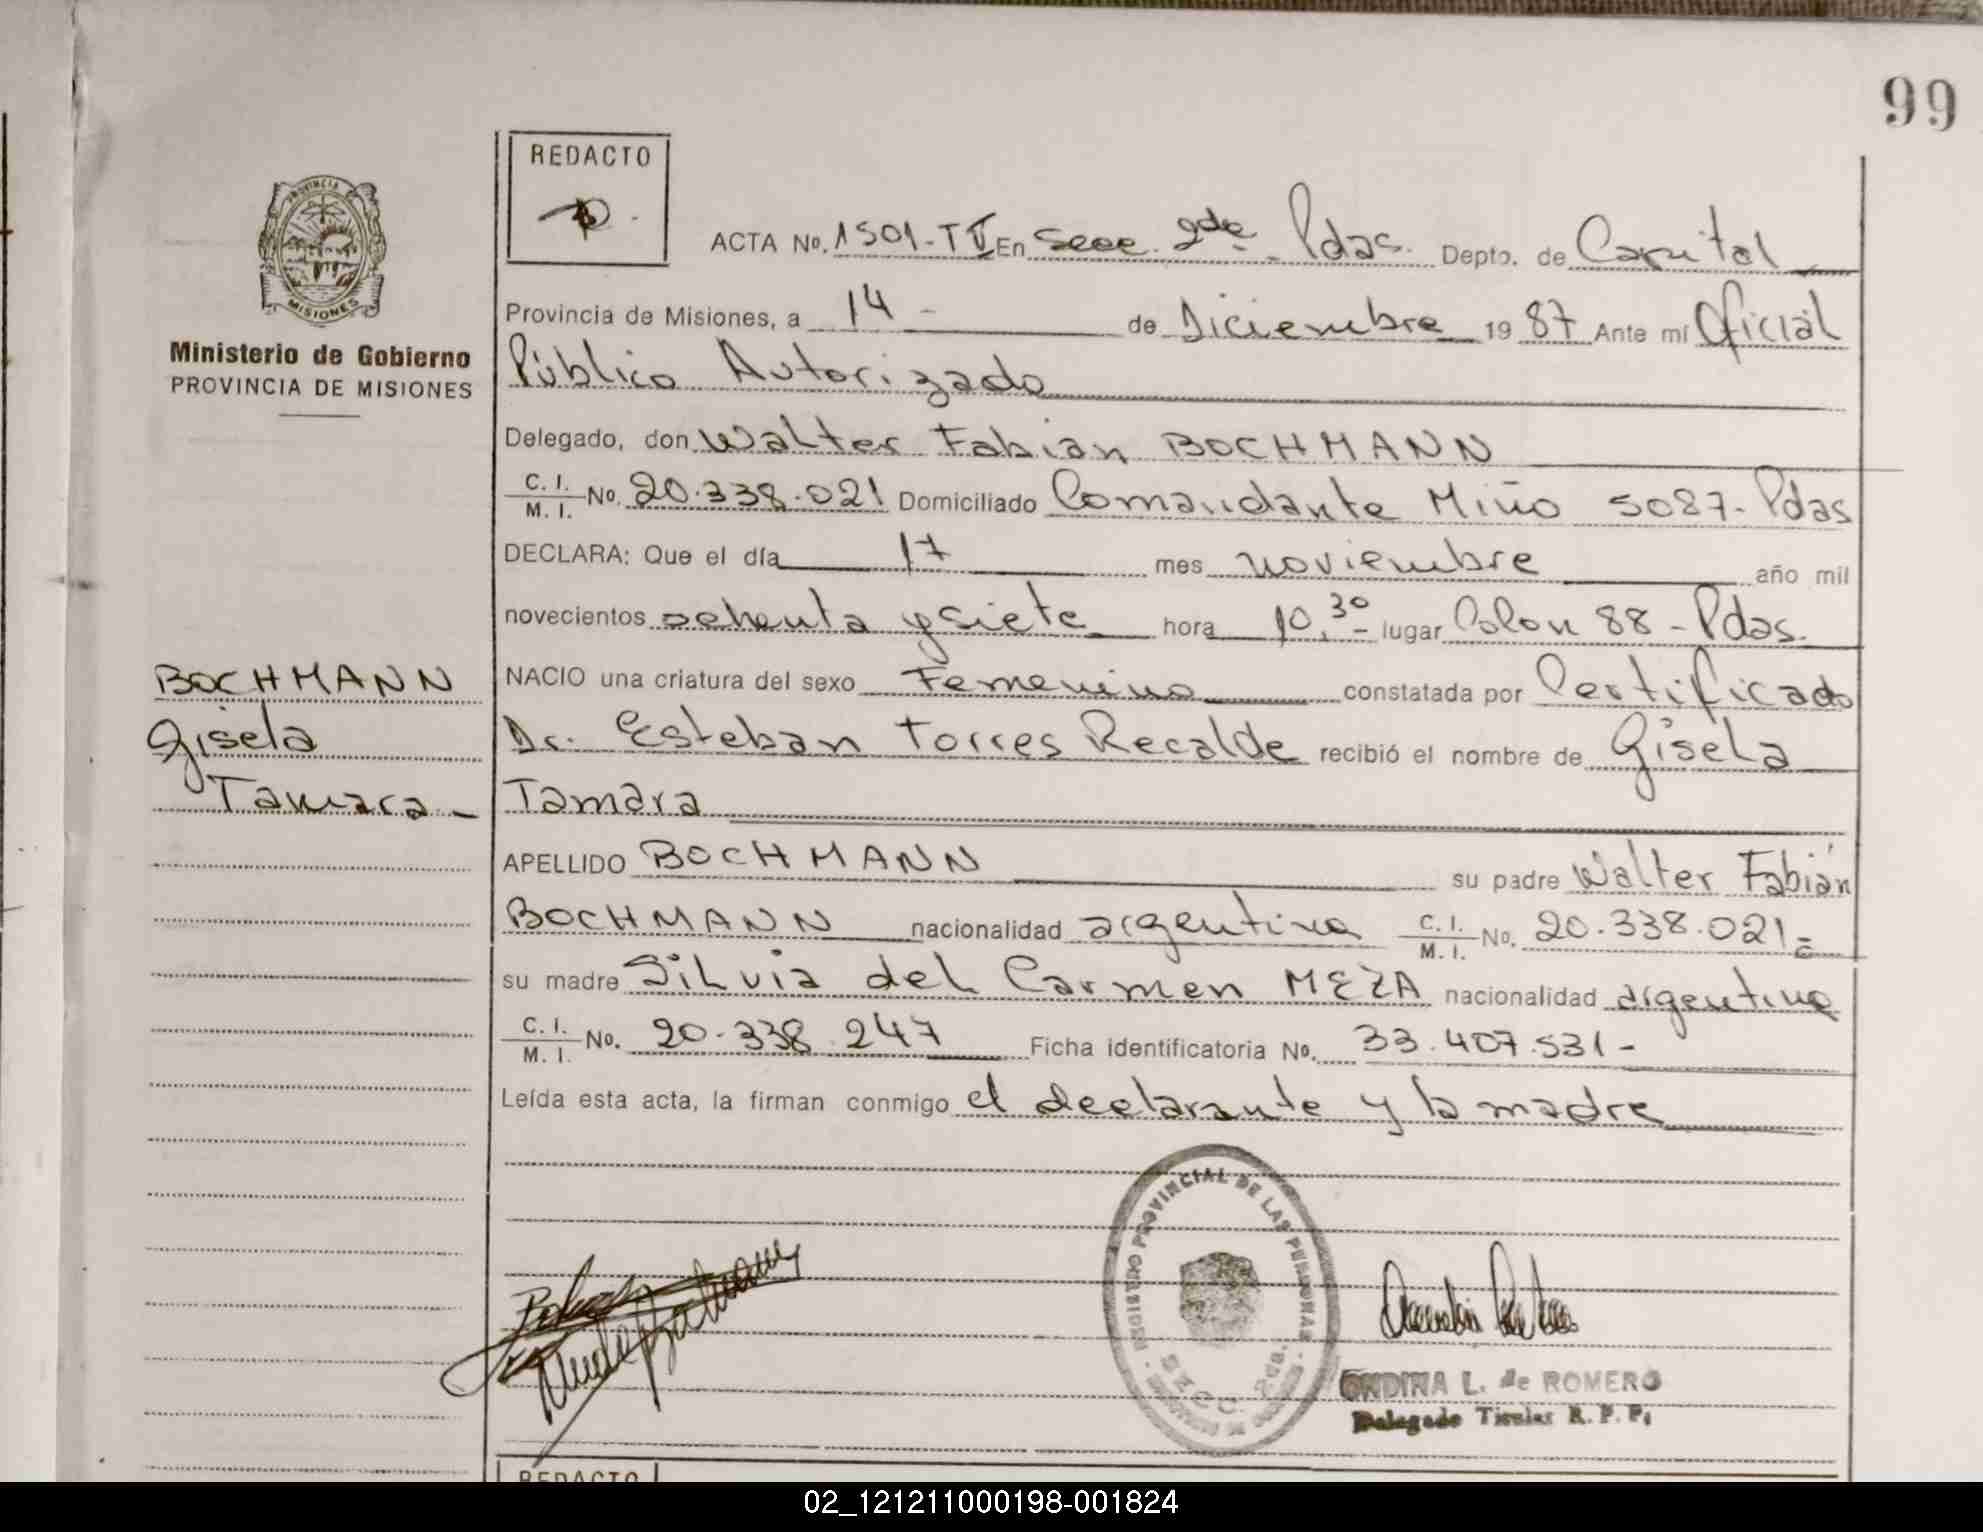 99
REDACTO
PROVINCIA DE
MISIONES
Ministerio de Gobierno
PROVINCIA DE MISIONES
ACTA No. 1501-T V En Secc. 2da. Pdas. Depto. de Capital
Provincia de Misiones, a 14 - de Diciembre 1987 Ante mí Oficial
Público Autorizado
Delegado, don Walter Fabian BOCHMANN
C. I.
M. I. No. 20.338.021 Domiciliado Comandante Miño 5087- Pdas
DECLARA: Que el día 17 mes noviembre año mil
novecientos ochenta y siete hora 10,30- lugar Colon 88 - Pdas.
NACIO una criatura del sexo Femenino constatada por Certificado
Dr. Esteban Torres Recalde recibió el nombre de Gisela
Tamara
APELLIDO BOCHMANN su padre Walter Fabián
BOCHMANN nacionalidad argentina C. I.
M. I. No. 20.338.021-
su madre Silvia del Carmen MEZA nacionalidad argentina
C. I.
M. I. No. 20.338.247 Ficha identificatoria No. 33.407.531-
Leída esta acta, la firman conmigo el declarante y la madre
BOCHMANN
Gisela
Tamara -
REGISTRO PROVINCIAL DE LAS PERSONAS
SECC. 2da.
ONDINA L. de ROMERO
Delegado Titular R. P. P.
REDACTO
02_121211000198-001824